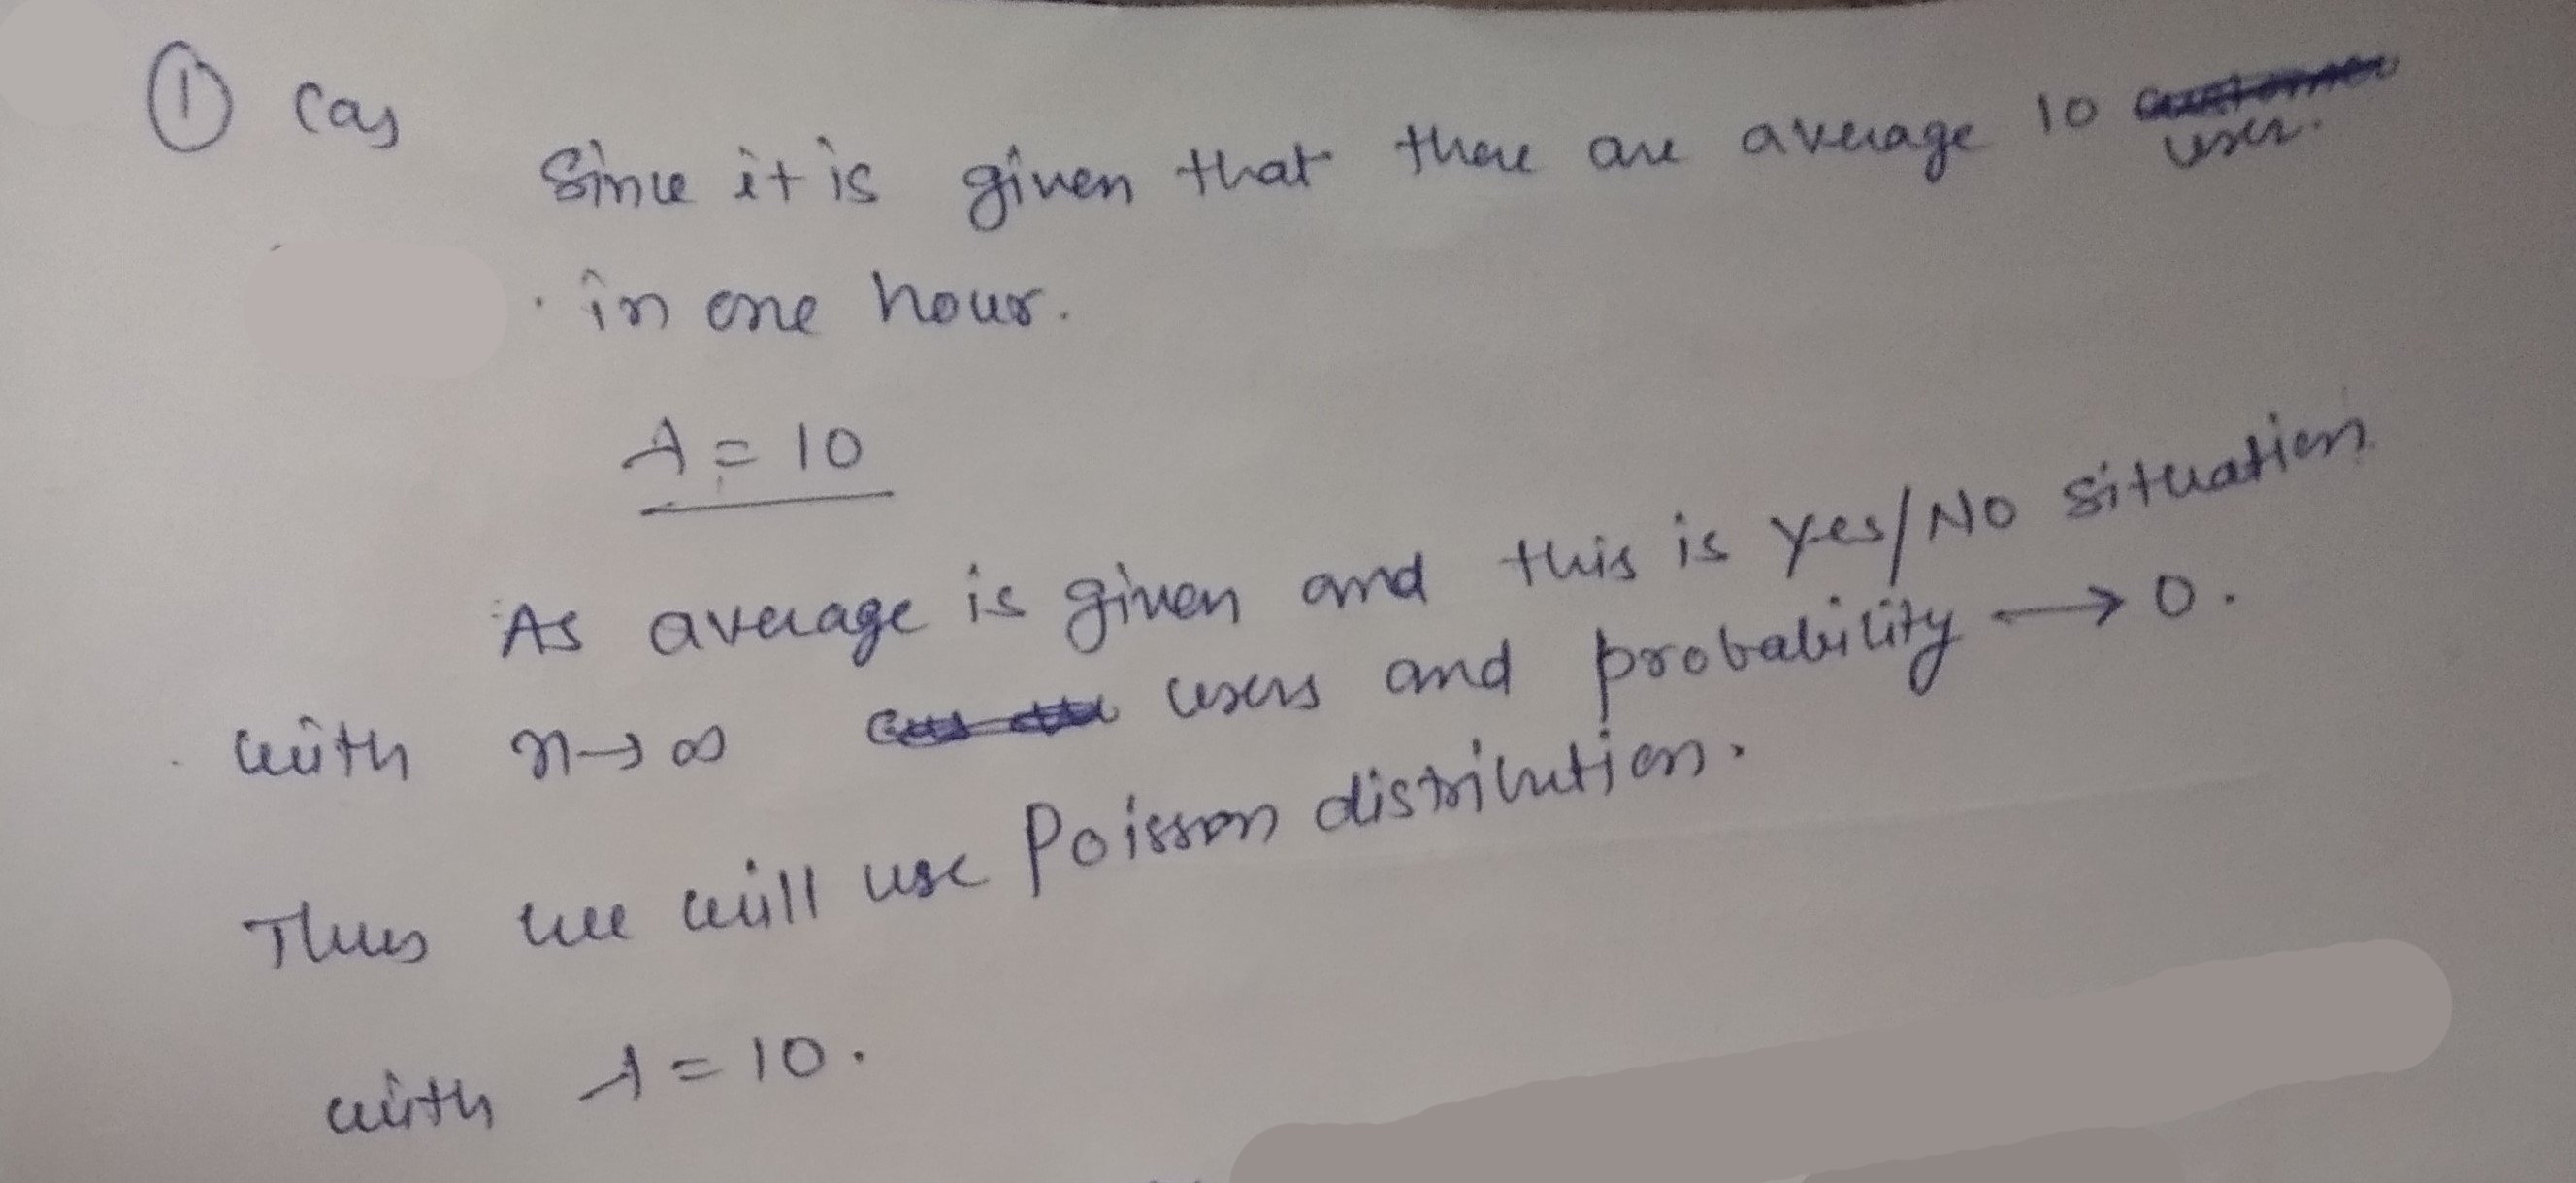 ① (a)
Since it is given that there are average 10 user.
in one hour.
λ = 10
As average is given and this is Yes/No situation
with n→∞ users and probability → 0.
Thus we will use Poisson distribution.
with λ = 10.